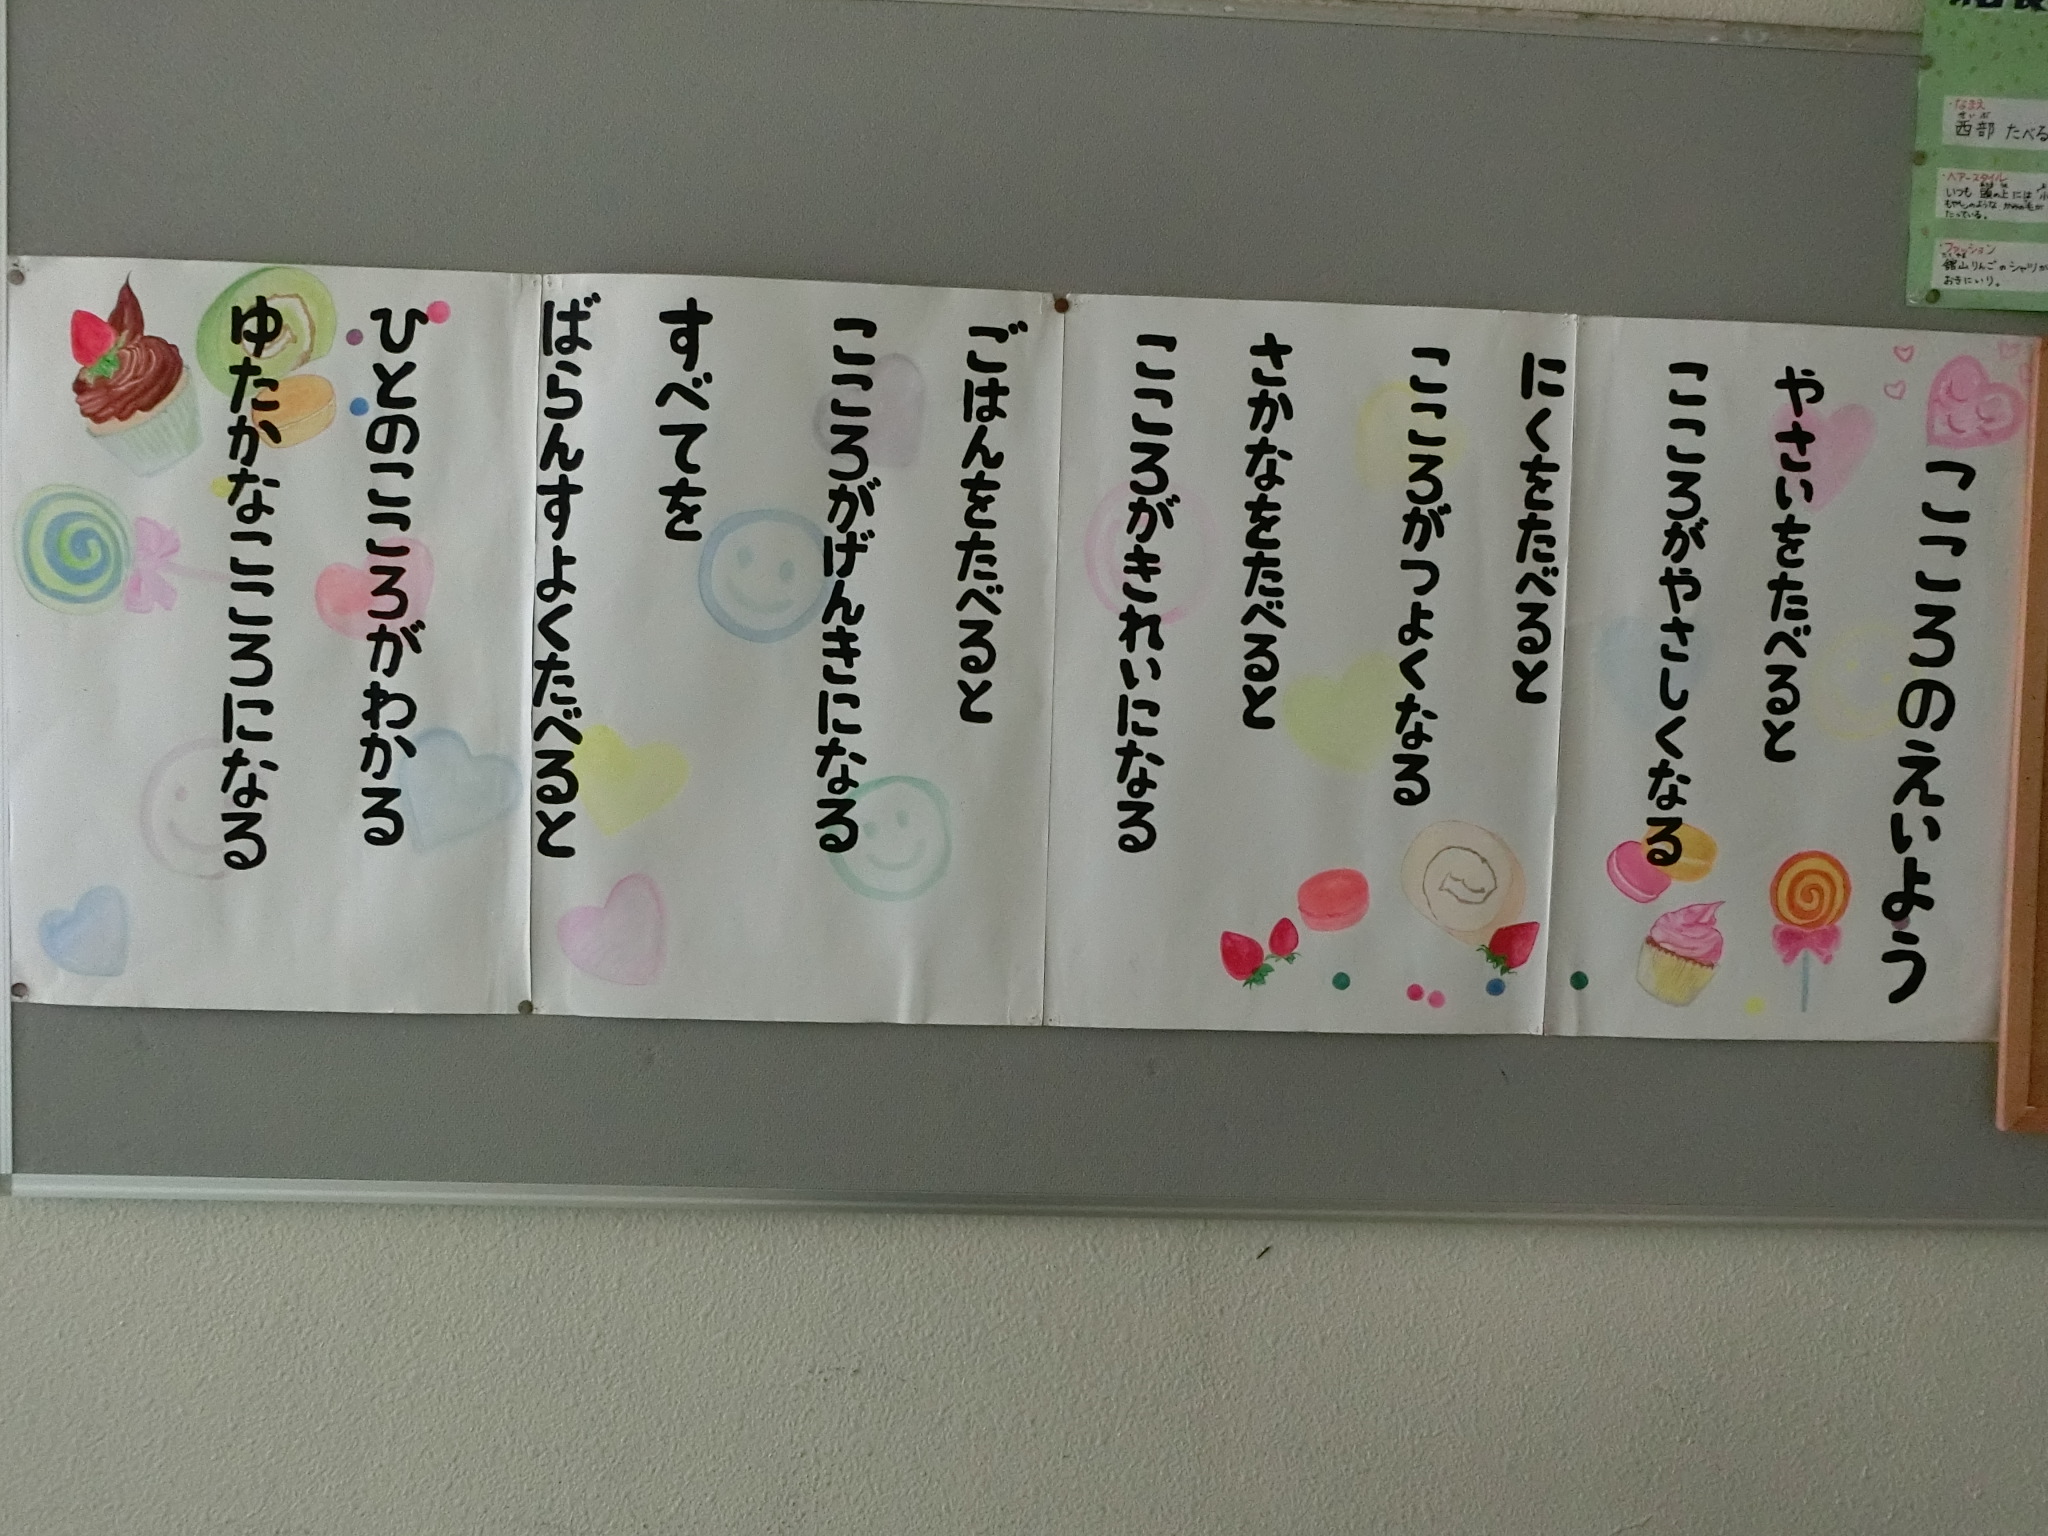 こころのえいよう
やさいをたべると
こころがやさしくなる
にくをたべると
こころがつよくなる
さかなをたべると
こころがきれいになる
ごはんをたべると
こころがげんきになる
すべてを
ばらんすよくたべると
ひとのこころがわかる
ゆたかなこころになる
・なまえ
せいぶ
西部 たべる
・ヘアースタイル
いつも 頭の上には
もやしのような かみの毛が
たっている。
・ファッション
館山りんごのシャツが
おきにいり。